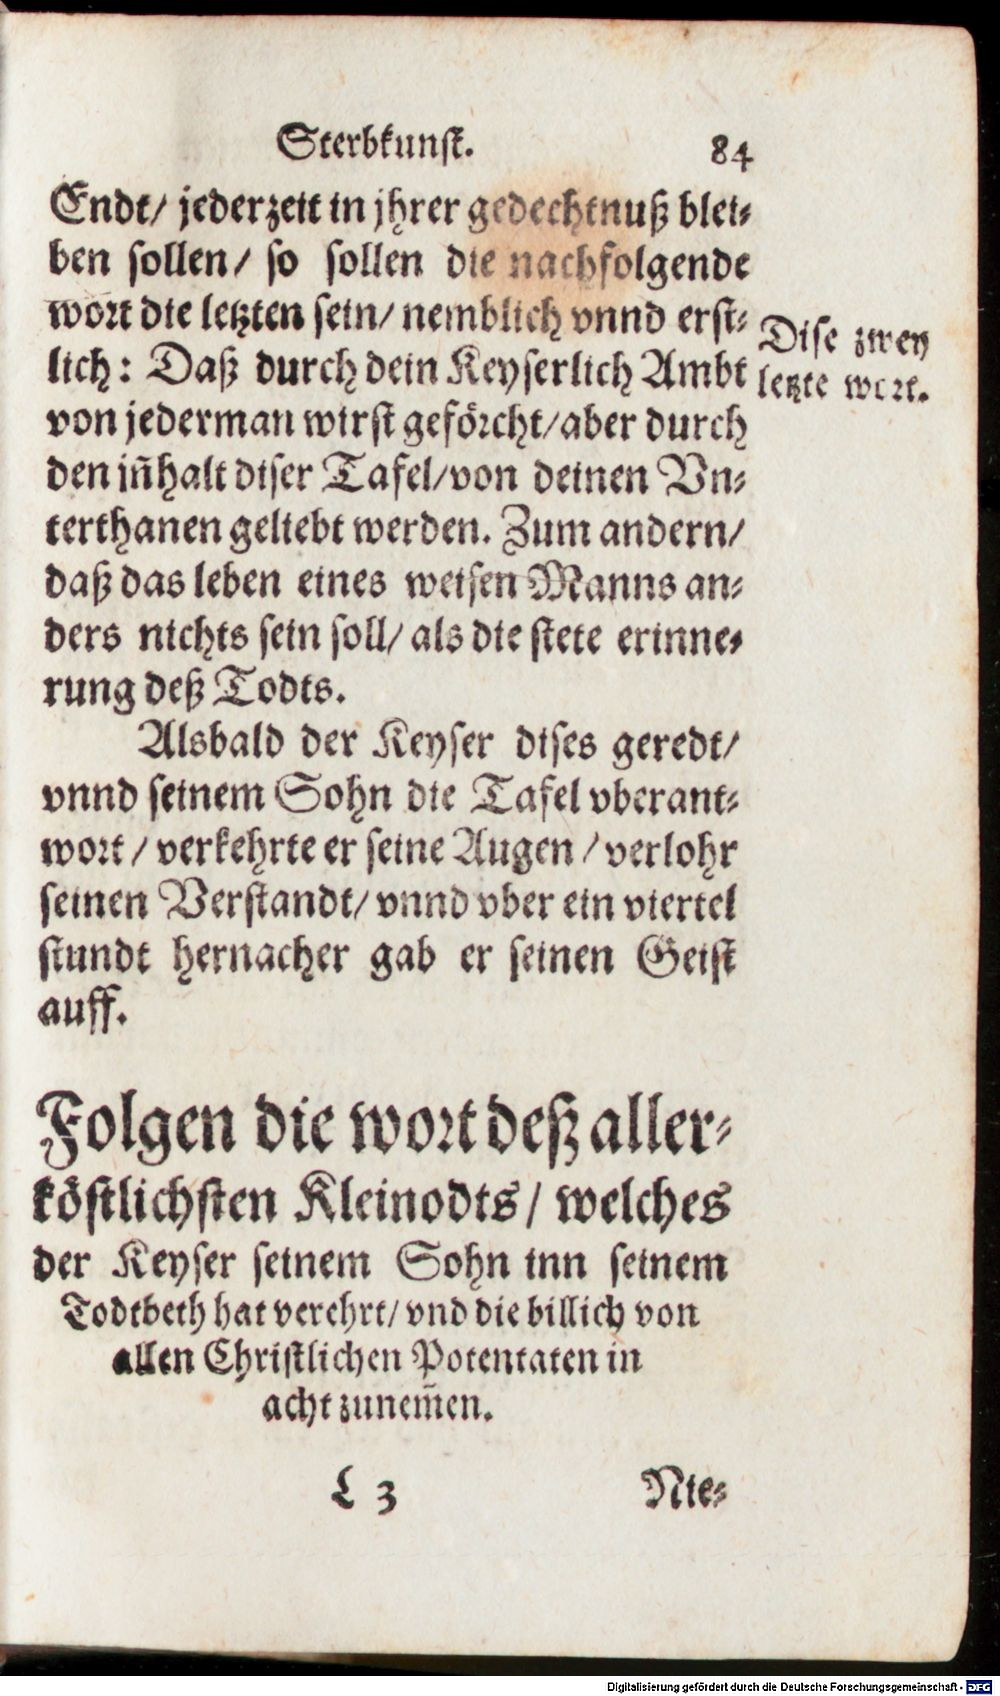 Sterbkunst. 84
Endt/ jederzeit in jhrer gedechtnuß blei-
ben sollen/ so sollen die nachfolgende
wort die letzten sein/ nemblich vnnd erst-
lich: Daß durch dein Keyserlich Ambt
von jederman wirst geförcht/ aber durch
den jñhalt diser Tafel/ von deinen Vn-
terthanen geliebt werden. Zum andern/
daß das leben eines weisen Manns an-
ders nichts sein soll/ als die stete erinne-
rung deß Todts.
Dise zwey
letzte wort.
Alsbald der Keyser dises geredt/
vnnd seinem Sohn die Tafel vberant-
wort/ verkehrte er seine Augen/ verlohr
seinen Verstandt/ vnnd vber ein viertel
stundt hernacher gab er seinen Geist
auff.
Folgen die wort deß aller-
köstlichsten Kleinodts/ welches
der Keyser seinem Sohn inn seinem
Todtbeth hat verehrt/ vnd die billich von
allen Christlichen Potentaten in
acht zunem̃en.
L 3 Nie-
Digitalisierung gefördert durch die Deutsche Forschungsgemeinschaft - DFG